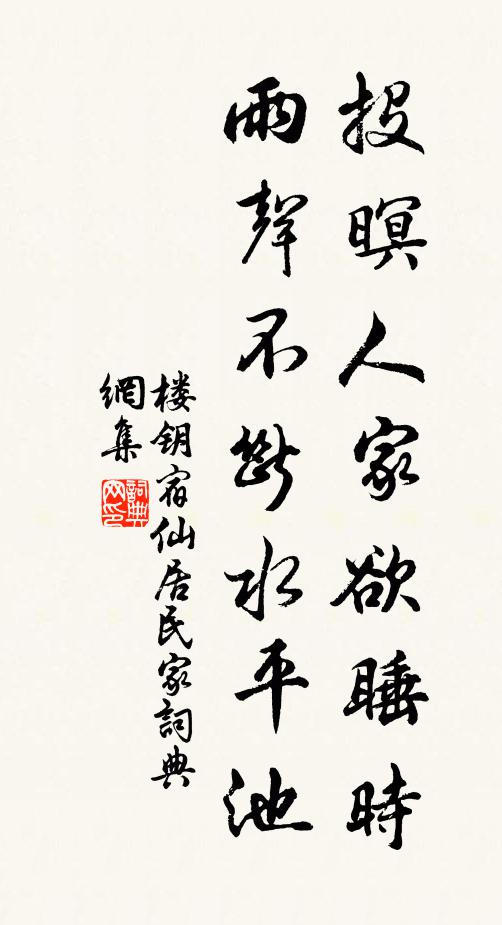 投暝人家欲睡時
雨聲不斷水平池
楼钥宿仙居民家詞典
網集
詞典
网印